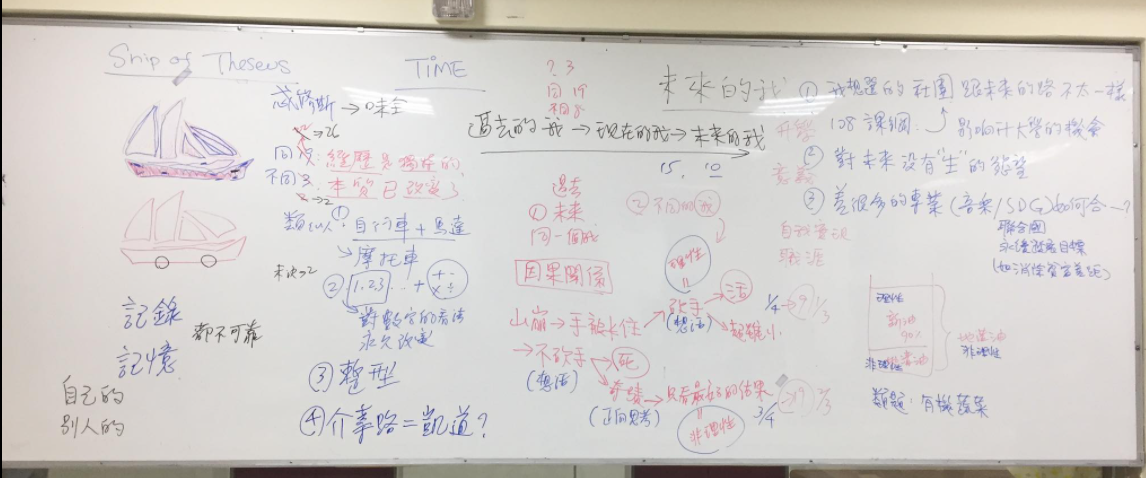 Ship of Theseus
忒修斯→
→26
同:經歷是獨特的,
不同:本質已改變了
→2
類似:①自行車+馬達
→摩托車
未決→2
②1.2.3...+ + - × ÷
對數字的看法
永久改變
③整型
④介壽路=凱道?
記錄
記憶
都不可靠
自己的
別人的
TIME
? 3
同 19
不同 8
過去的我→現在的我→未來的我
15. 10
過去
①未來
同一個我
②不同的我
因果關係
理性
山崩→手被卡住→砍手→活
(想活)
→不砍手→死
(想活)
奇蹟→只看最好的結果
(正向思考)
非理性
1/4→9 1/3
3/4→19 2/3
未來的我
升學
意義
自我實現
職涯
①我想選的社團跟未來的路不太一樣
108課綱:影響升大學的機會
②對未來沒有"生"的慾望
③差很多的專業(音樂/SDG)如何合一?
聯合國
永續發展目標
(如減低貧富差距)
理性
新油
90%
非理性
地溝油
非理性
類題:有機蔬果